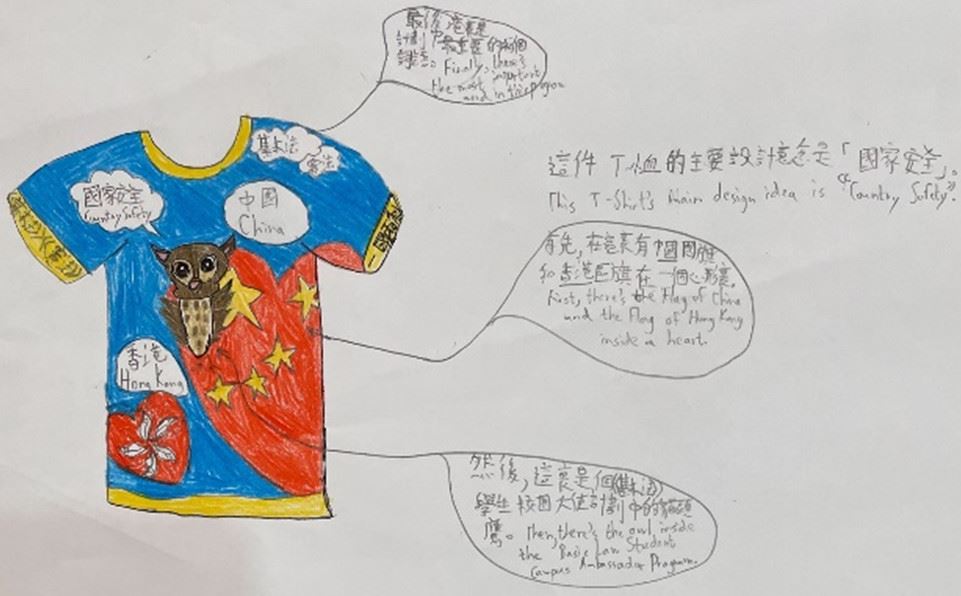 最後,這裏是
計劃中最重要的兩個
詞語。Finally, there's
the most important
word in this program
這件T-恤的主要設計意念是「國家安全」。
This T-Shirt's main design idea is "Country Safety".
基本法
憲法
國家安全
Country Safety
中國
China
一國兩制
香港
Hong Kong
首先,在這裏有中國國旗
和香港區旗在一個心形裏。
First, there's the Flag of China
and the Flag of Hong Kong
inside a heart.
然後,這裏是個《基本法》
學生校園大使計劃中的貓頭
鷹。Then, there's the owl inside
the Basic Law Student
Campus Ambassador Program.